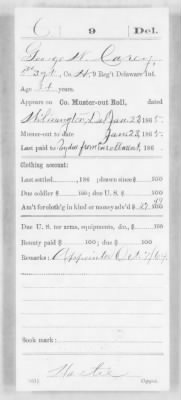 C 9 Del.
George W. Carey
1st Sgt., Co. H, 9 Reg't Delaware Inf.
Age 34 years.
Appears on Co. Muster-out Roll, dated
Wilmington, Del Jan 23 1865.
Muster-out to date Jan 23, 1865.
Last paid to , 186 .
Clothing account:
Last settled , 186 ; drawn since $ 100
Due soldier $ 100; due U. S. $ 100
Am't for cloth'g in kind or money adv'd $ 27 49/100
Due U. S. for arms, equipments, &c., $ 100
Bounty paid $ 100; due $ 100
Remarks: Appointed Oct
Book mark:
Copyist.